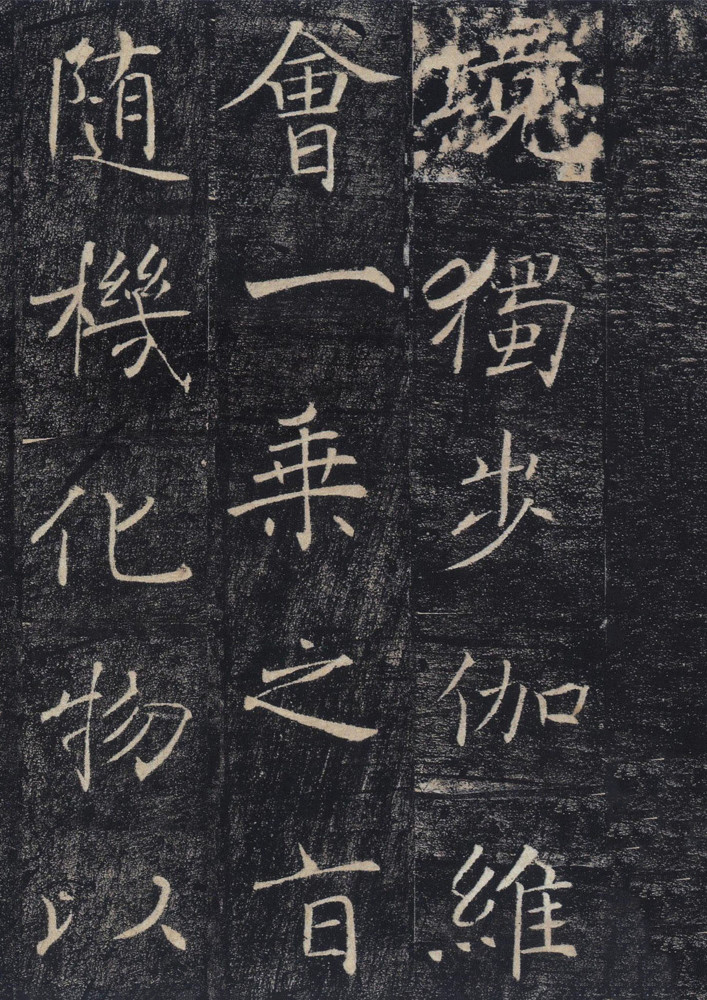 境獨步伽維
會一乗之旨
随機化物以